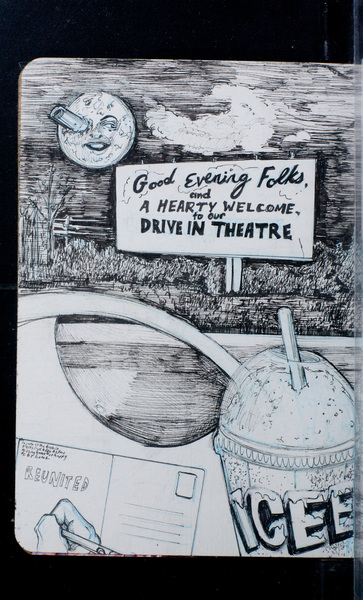 Good Evening Folks,
and
A HEARTY WELCOME,
to our
DRIVE IN THEATRE
REUNITED
ICEE